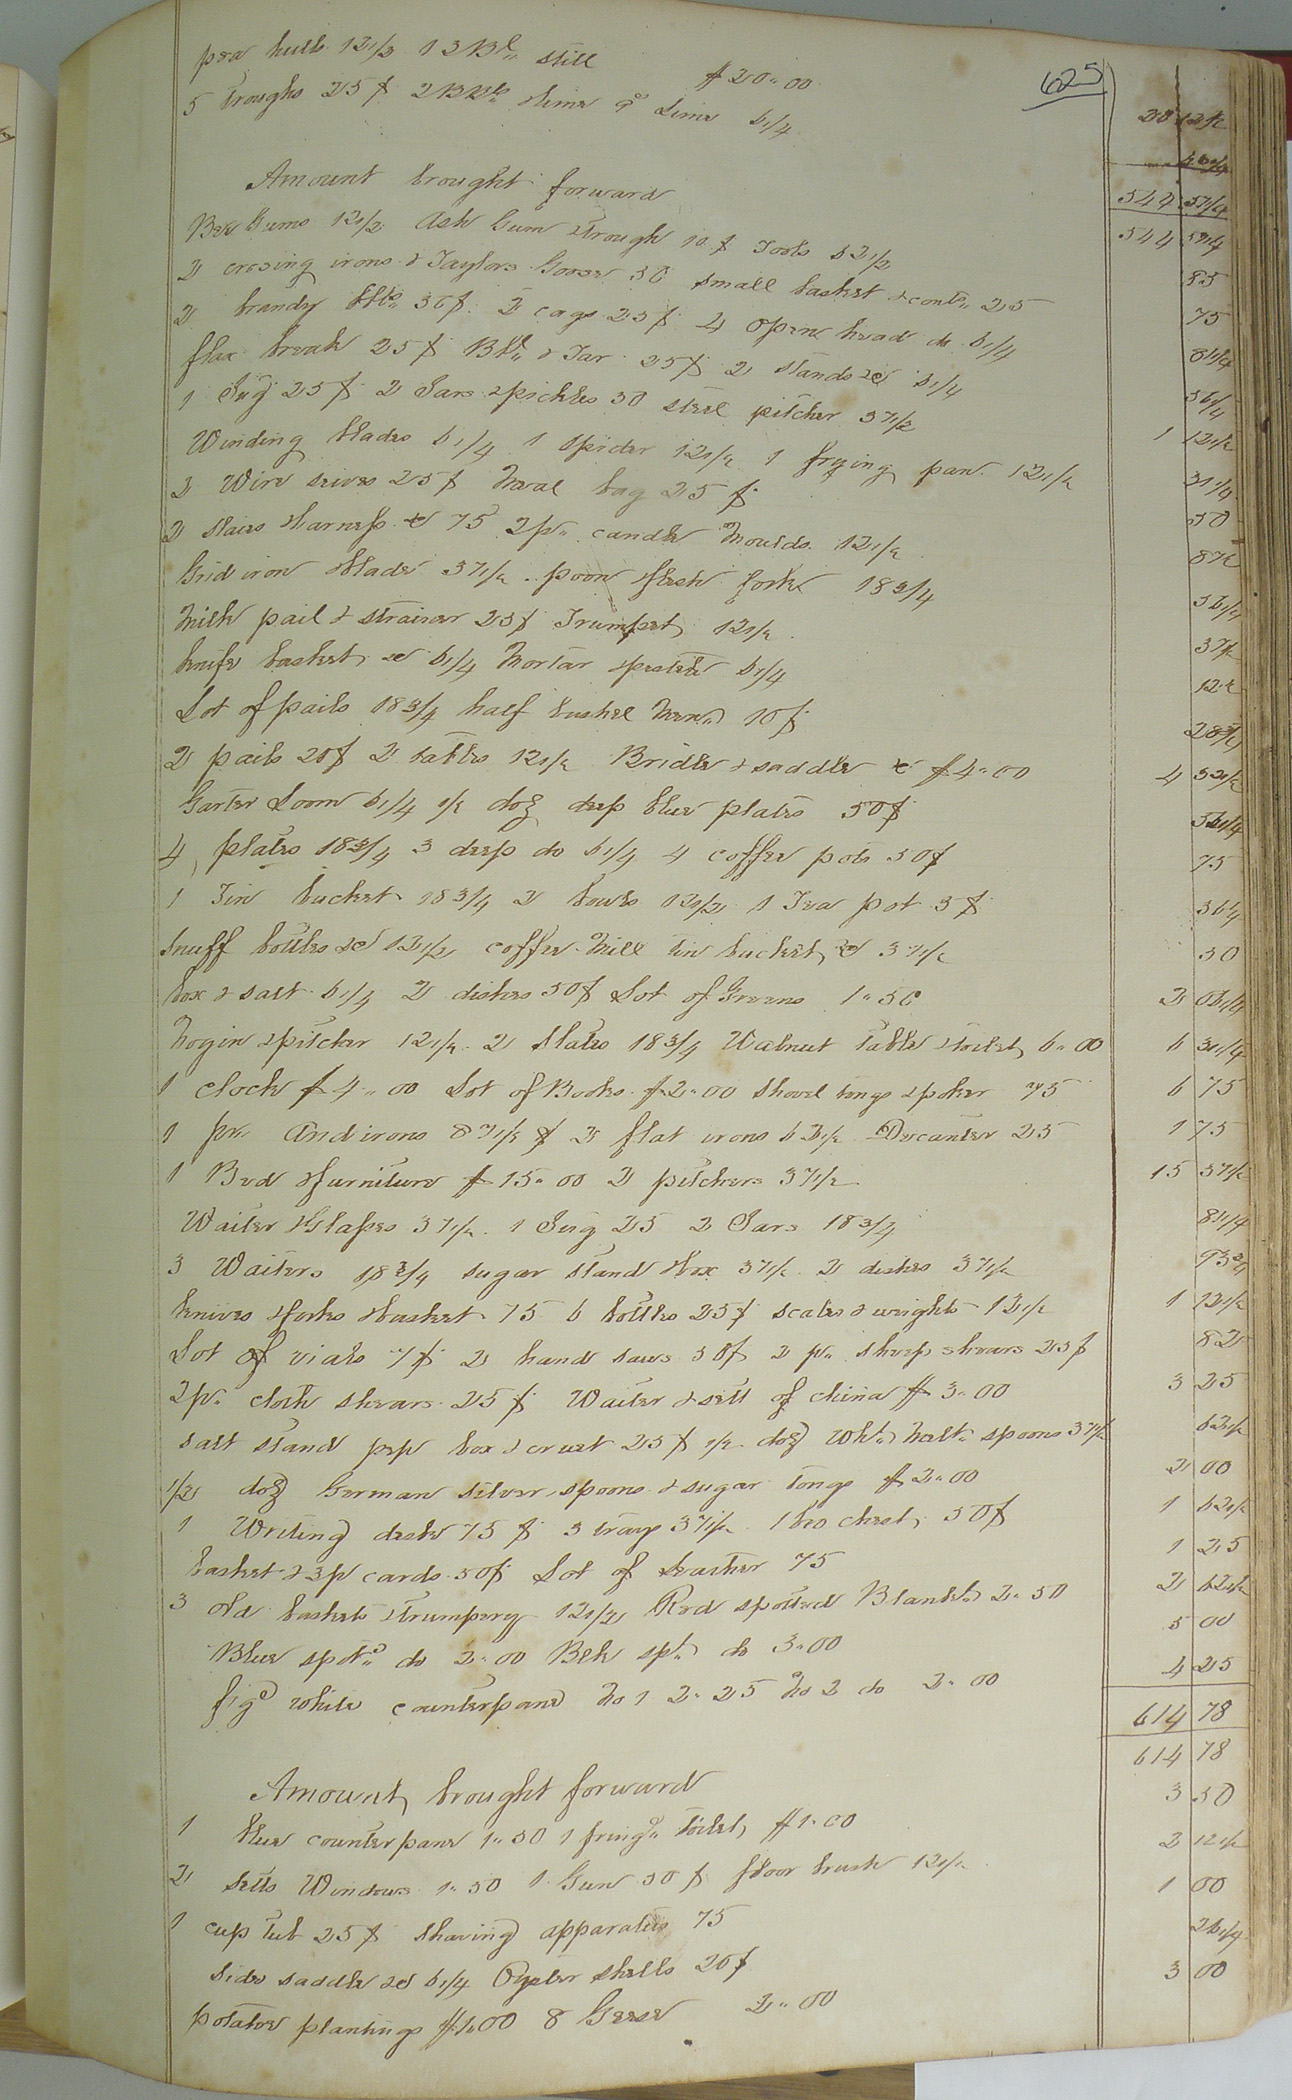 625
pea hulls 12 1/2 1 Bl. still $20.00 20 12 1/2
5 troughs 25 ¢ 2 Bbls Lime 6 1/4
544 57 1/4
Amount brought forward 544 57 1/4
Bee Gums 12 1/2 Ash Gum & trough 10 ¢ Tools 62 1/2 85
2 crosing irons & Taylors Goose 50 small basket & cont. 25 75
2 brandy bbls. 50 ¢ 2 cags 25 ¢ 4 open head do 6 1/4 81 1/4
flax break 25 ¢ Bbl. & Tar 25 ¢ 2 stands &c 6 1/4 56 1/4
1 Jug 25 ¢ 2 Jars & pickles 50 steel pitcher 37 1/2 1 12 1/2
Winding blades 6 1/4 1 spider 12 1/2 1 frying pan 12 1/2 31 1/4
2 Wire seives 25 ¢ meal bag 25 ¢ 50
2 slaies & harness &c 75 2 p. candle moulds 12 1/2 87 1/2
Grid iron & blade 37 1/2 flesh fork 18 3/4 56 1/4
milk pail & strainer 25 ¢ Trumpet 12 1/2 37 1/2
knife basket &c 6 1/4 mortar & pestele 6 1/4 12 1/2
Lot of pails 18 3/4 half bushel 10 ¢ 28 3/4
2 pails 20 ¢ 2 tables 12 1/2 Bridle & saddle &c $4.00 4 32 1/2
Garter Loom 6 1/4 1/2 doz deep blue plates 50 ¢ 56 1/4
4 plates 18 3/4 3 deep do 6 1/4 4 coffee pots 50 ¢ 75
1 Tin bucket 18 3/4 2 bowls 12 1/2 1 Tea pot 5 ¢ 36 1/4
Snuff bottles &c 12 1/2 coffee mill tin bucket &c 37 1/2 50
box & salt 6 1/4 2 dishes 50 ¢ Lot of Greens 1.50 2 06 1/4
Nogin & pitcher 12 1/2 2 slates 18 3/4 Walnut table & toilet 6.00 6 31 1/4
1 clock $4.00 Lot of Books $2.00 shovel tongs & poker 75 6 75
1 pr. Andirons 87 1/2 ¢ 2 flat irons 62 1/2 Decanter 25 1 75
1 Bed & furniture $15.00 2 pitchers 37 1/2 15 37 1/2
Waiter & Glasses 37 1/2 1 Jug 25 2 Jars 18 3/4 81 1/4
3 Waiters 18 3/4 sugar stand & box 37 1/2 2 dishes 37 1/2 93 3/4
knives & forks & basket 75 6 bottles 25 ¢ scales & weights 12 1/2 1 12 1/2
Lot of vials 7 ¢ 2 hand saws 50 ¢ 2 p. sheep shears 25 ¢ 82
2 p. cloth shears 25 ¢ Waiter & sett of china $3.00 3 25
salt stand pep box & cruet 25 ¢ 1/2 doz Wht. spoons 37 1/2 62 1/2
1/2 doz German silver spoons & sugar tongs $2.00 2 00
1 Writing desk 75 ¢ 3 trays 37 1/2 1 chest 50 ¢ 1 62 1/2
basket & 3 p cards 50 ¢ Lot of Leather 75 1 25
3 old baskets & trumpery 12 1/2 Red spotted Blanket 2.50 2 62 1/2
Blue spotd. do 2.00 Blk spt. do 3.00 5 00
figd white counterpane No 1 2.25 No 2 do 2.00 4 25
614 78
Amount brought forward 614 78
1 blue counterpane 1.50 1 fringd. toilet $1.00 3 50
2 setts Windows 1.50 1 Gun 50 ¢ floor brush 12 1/2 2 12 1/2
1 cup tub 25 ¢ shaving apparatus 75 1 00
side saddle &c 6 1/4 Oyster shells 20 ¢ 26 1/4
potatoe plantings $1.00 8 Geese 2.00 3 00